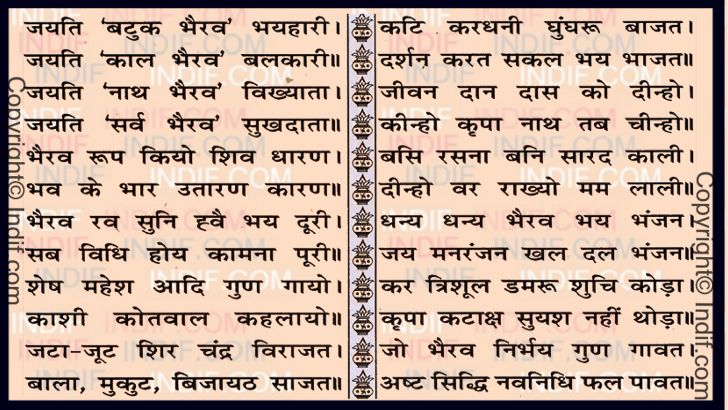 जयति 'बटुक भैरव' भयहारी।
जयति 'काल भैरव' बलकारी॥
जयति 'नाथ भैरव' विख्याता।
जयति 'सर्व भैरव' सुखदाता॥
भैरव रूप कियो शिव धारण।
भव के भार उतारण कारण॥
भैरव रव सुनि ह्वै भय दूरी।
सब विधि होय कामना पूरी॥
शेष महेश आदि गुण गायो।
काशी कोतवाल कहलायो॥
जटा-जूट शिर चंद्र विराजत।
बाला, मुकुट, बिजायठ साजत॥
कटि करधनी घुंघरू बाजत।
दर्शन करत सकल भय भाजत॥
जीवन दान दास को दीन्हो।
कीन्हो कृपा नाथ तब चीन्हो॥
बसि रसना बनि सारद काली।
दीन्हो वर राख्यो मम लाली॥
धन्य धन्य भैरव भय भंजन।
जय मनरंजन खल दल भंजन॥
कर त्रिशूल डमरू शुचि कोड़ा।
कृपा कटाक्ष सुयश नहीं थोड़ा॥
जो भैरव निर्भय गुण गावत।
अष्ट सिद्धि नवनिधि फल पावत॥
Copyright© Indif.com
Copyright© Indif.com
INDIF.COM